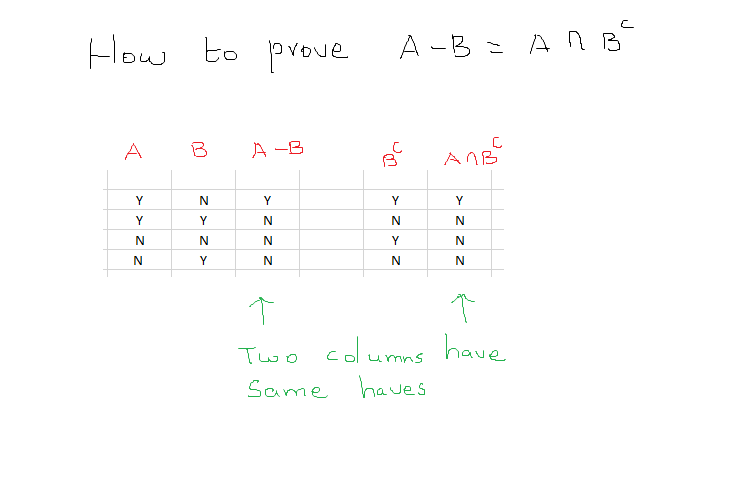 How to prove A-B = A ∩ Bᶜ
A B A-B Bᶜ A∩Bᶜ
Y N Y Y Y
Y Y N N N
N N N Y N
N Y N N N
Two columns have
Same haves